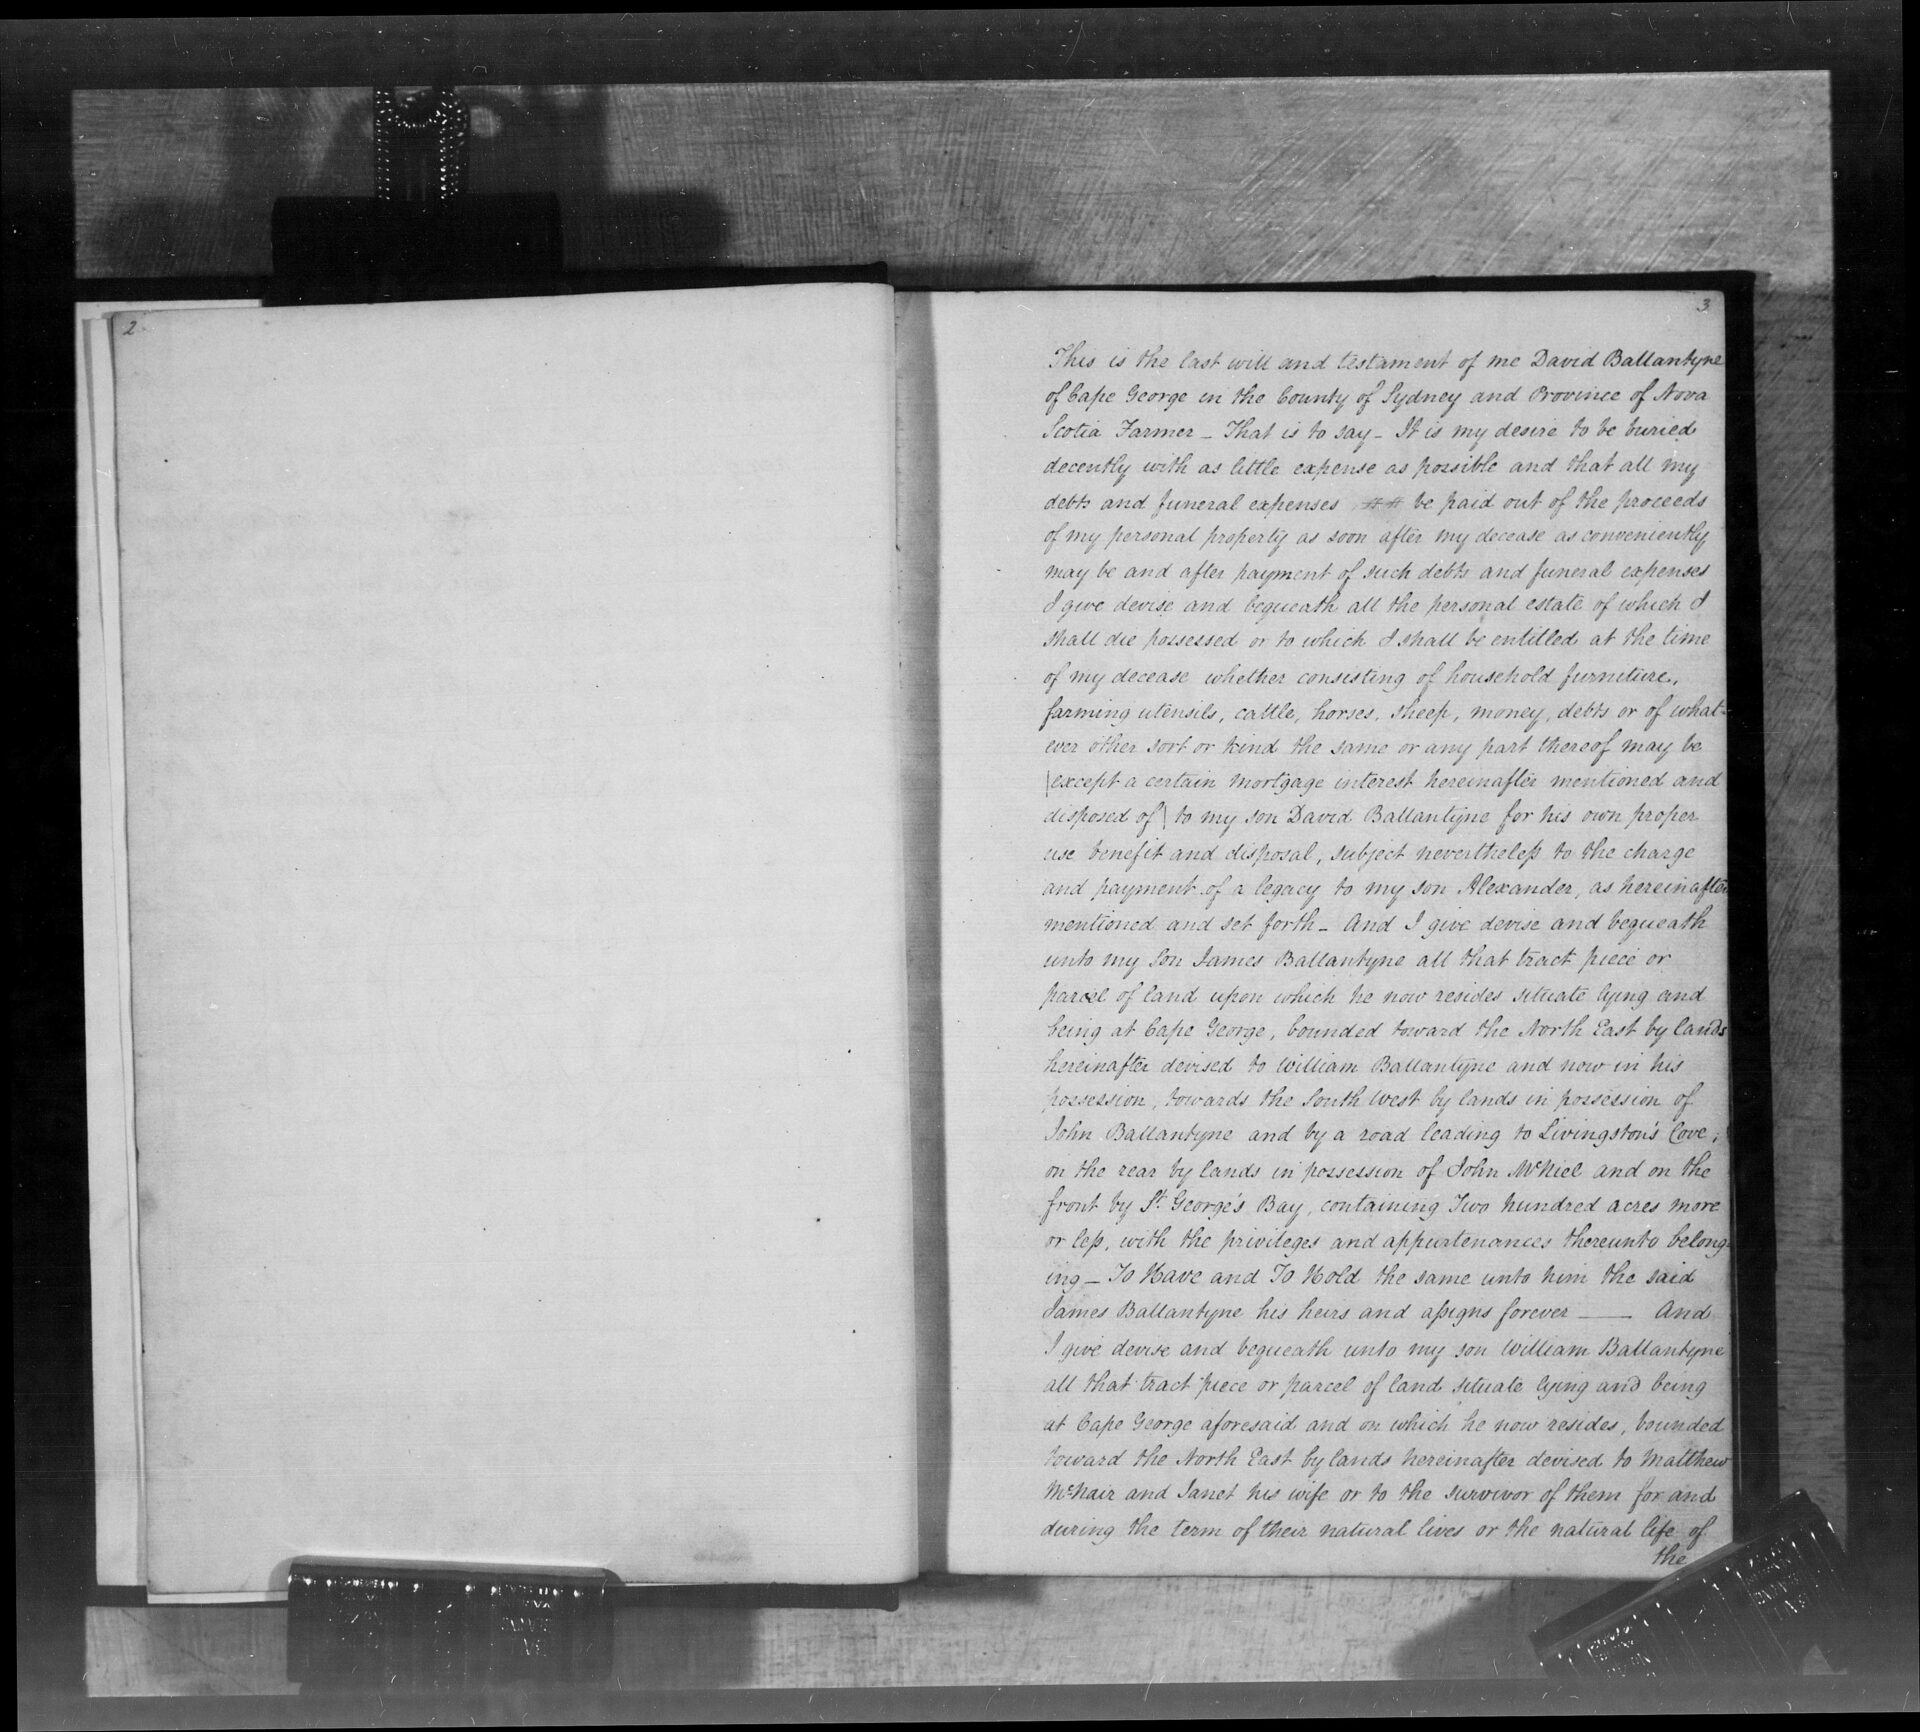 2
3
This is the last will and testament of me David Ballantyne
of Cape George in the County of Sydney and Province of Nova
Scotia Farmer - That is to say - It is my desire to be buried
decently with as little expense as possible and that all my
debts and funeral expenses be paid out of the proceeds
of my personal property as soon after my decease as conveniently
may be and after payment of such debts and funeral expenses
I give devise and bequeath all the personal estate of which I
shall die possessed or to which I shall be entitled at the time
of my decease whether consisting of household furniture,
farming utensils, cattle, horses, sheep, money, debts or of what-
ever other sort or kind the same or any part thereof may be
|except a certain mortgage interest hereinafter mentioned and
disposed of| to my son David Ballantyne for his own proper
use benefit and disposal, subject nevertheless to the charge
and payment of a legacy to my son Alexander, as hereinafter
mentioned and set forth - And I give devise and bequeath
unto my Son James Ballantyne all that tract piece or
parcel of land upon which he now resides situate lying and
being at Cape George, bounded toward the North East by lands
hereinafter devised to William Ballantyne and now in his
possession, towards the South West by lands in possession of
John Ballantyne and by a road leading to Livingston's Cove;
on the rear by lands in possession of John McNiel and on the
front by St. George's Bay, containing Two hundred acres more
or less, with the privileges and appurtenances thereunto belong-
ing - To Have and To Hold the same unto him the said
James Ballantyne his heirs and assigns forever —— And
I give devise and bequeath unto my son William Ballantyne
all that tract piece or parcel of land situate lying and being
at Cape George aforesaid and on which he now resides, bounded
toward the North East by lands hereinafter devised to Matthew
McNair and Janet his wife or to the survivor of them for and
during the term of their natural lives or the natural life of
the